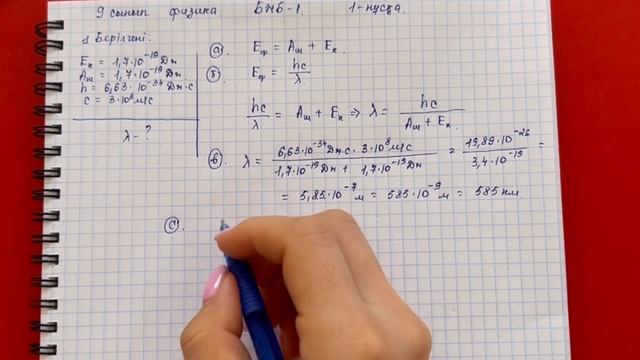 9 сынып физика. БЖБ-1. 1-нұсқа.
1 Берілгені:
Eк = 1,7·10⁻¹⁹ Дж
Aш = 1,7·10⁻¹⁹ Дж.
h = 6,63·10⁻³⁴ Дж·с
c = 3·10⁸ м/с
λ - ?
а). Eф = Aш + Eк.
Eф = hc/λ
hc/λ = Aш + Eк ⇒ λ = hc/(Aш + Eк).
λ = (6,63·10⁻³⁴ Дж·с · 3·10⁸ м/с)/(1,7·10⁻¹⁹ Дж + 1,7·10⁻¹⁹ Дж) = 19,89·10⁻²⁶/3,4·10⁻¹⁹ =
= 5,85·10⁻⁷ м = 585·10⁻⁹ м = 585 нм
с).